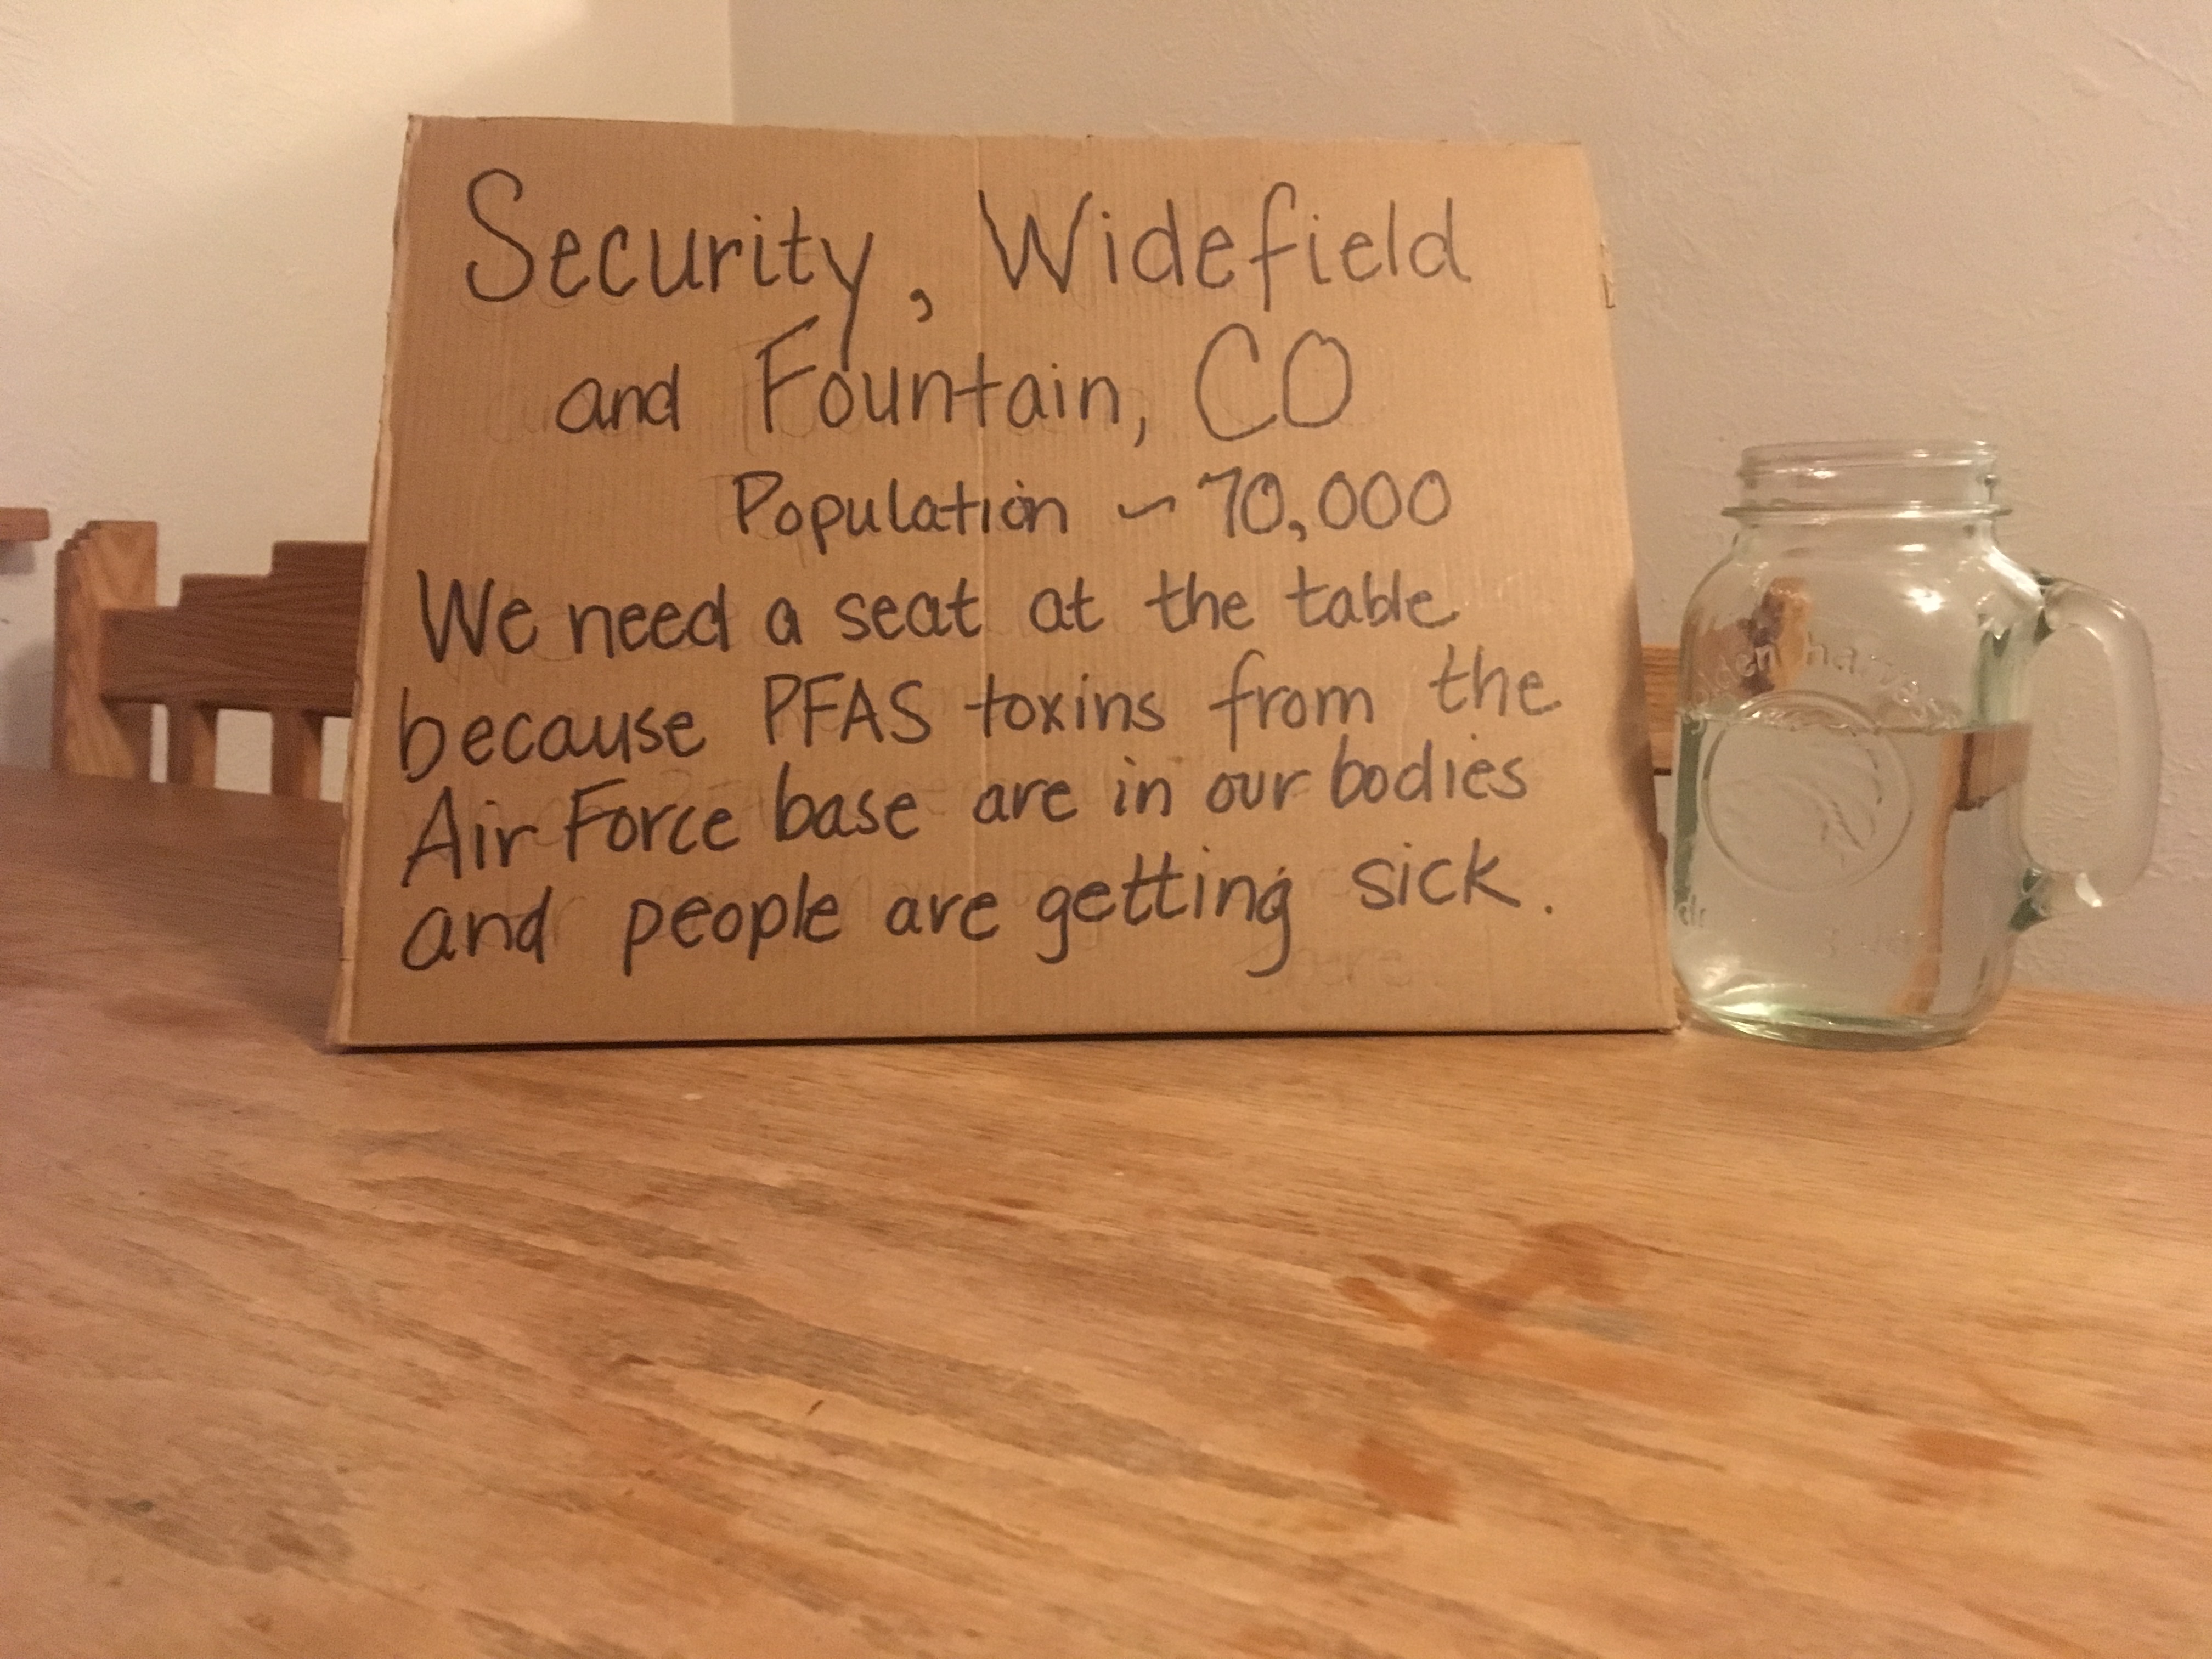 Security, Widefield
and Fountain, CO
Population ~ 70,000
We need a seat at the table
because PFAS toxins from the
Air Force base are in our bodies
and people are getting sick.
golden harvest